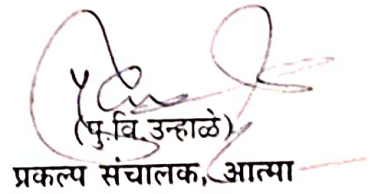 (पु.वि.उन्हाळे)
प्रकल्प संचालक, आत्मा